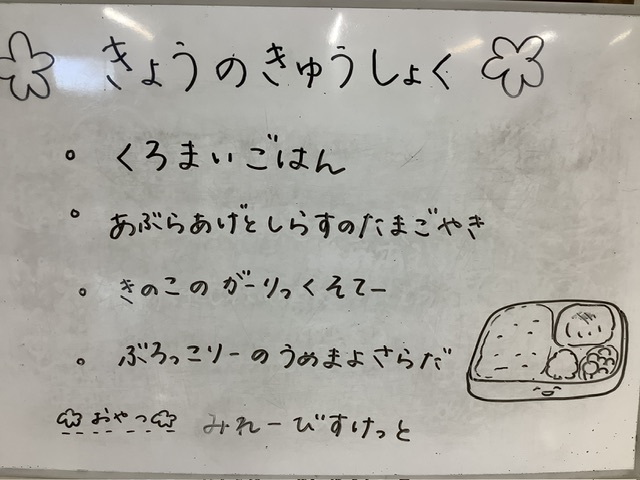 きょうのきゅうしょく
くろまいごはん
あぶらあげとしらすのたまごやき
きのこのがーりっくそてー
ぶろっこりーのうめまよさらだ
おやつ みれーびすけっと